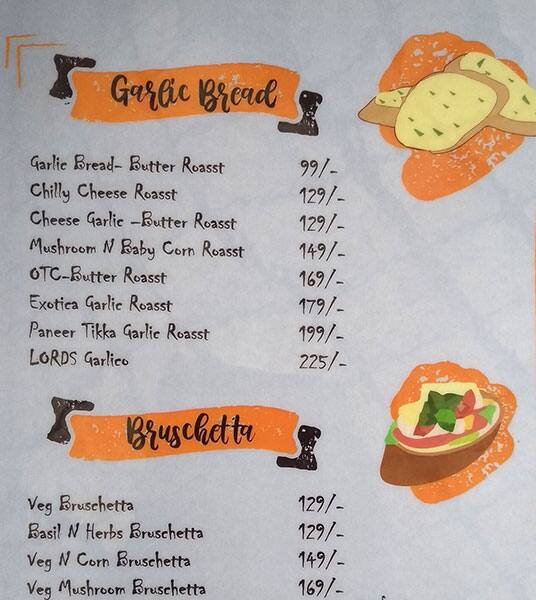 Garlic Bread
Garlic Bread- Butter Roasst 99/-
Chilly Cheese Roasst 129/-
Cheese Garlic -Butter Roasst 129/-
Mushroom N Baby Corn Roasst 149/-
OTC-Butter Roasst 169/-
Exotica Garlic Roasst 179/-
Paneer Tikka Garlic Roasst 199/-
LORDS Garlico 225/-
Bruschetta
Veg Bruschetta 129/-
Basil N Herbs Bruschetta 129/-
Veg N Corn Bruschetta 149/-
Veg Mushroom Bruschetta 169/-